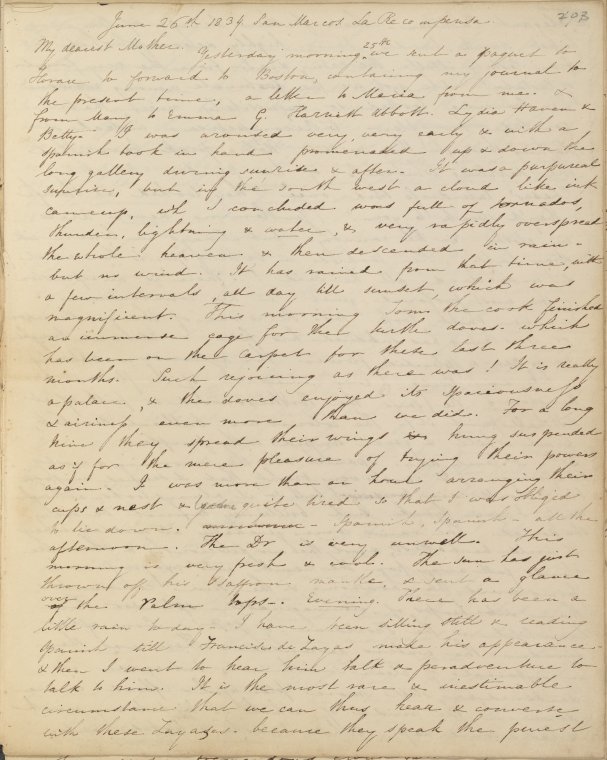 203
June 26th 1834. San Marcos. La Recompensa.
My dearest Mother. Yesterday morning, 25th we sent a paquet to
Horace to forward to Boston, containing my journal to
the present time, a letter to Maria from me. &
from Mary to Emma G. Harriett Abbott. Lydia Haven &
Betty. I was aroused very, very early & with a
Spanish book in hand promenaded up & down the
long gallery during sunrise & after. It was a purpureal
sunrise, but in the south west a cloud like ink
came up, wh I concluded was full of tornados,
thunder, lightning & water, &, very rapidly overspread
the whole heaven & then descended in rain -
but no wind. It has rained from that time, with
a few intervals, all day till sunset, which was
magnificent. This morning Tom, the cook finished
an immense cage for the turtle doves. which
has been on the carpet for these last three
months. Such rejoicing as there was! It is really
a palace, & the doves enjoyed its spaciousness
& airiness even more than we did. For a long
time they spread their wings & hung suspended
as if for the mere pleasure of trying their powers
again. I was more than an hour arranging their
cups & nest & quite tired so that I was obliged
to lie down. - Spanish, Spanish - all the
afternoon. The Dr is very unwell. This
morning is very fresh & cool. The sun has just
thrown off his saffron mantle, & sent a glance
over the Palm tops -. Evening. There has been a
little rain today. I have been sitting still & reading
Spanish till Francisco de Zayas make his appearance.
& then I went to hear him talk & peradventure to
talk to him. It is the most rare & inestimable
circumstance that we can thus hear & converse
with these Zayases. because they speak the purest